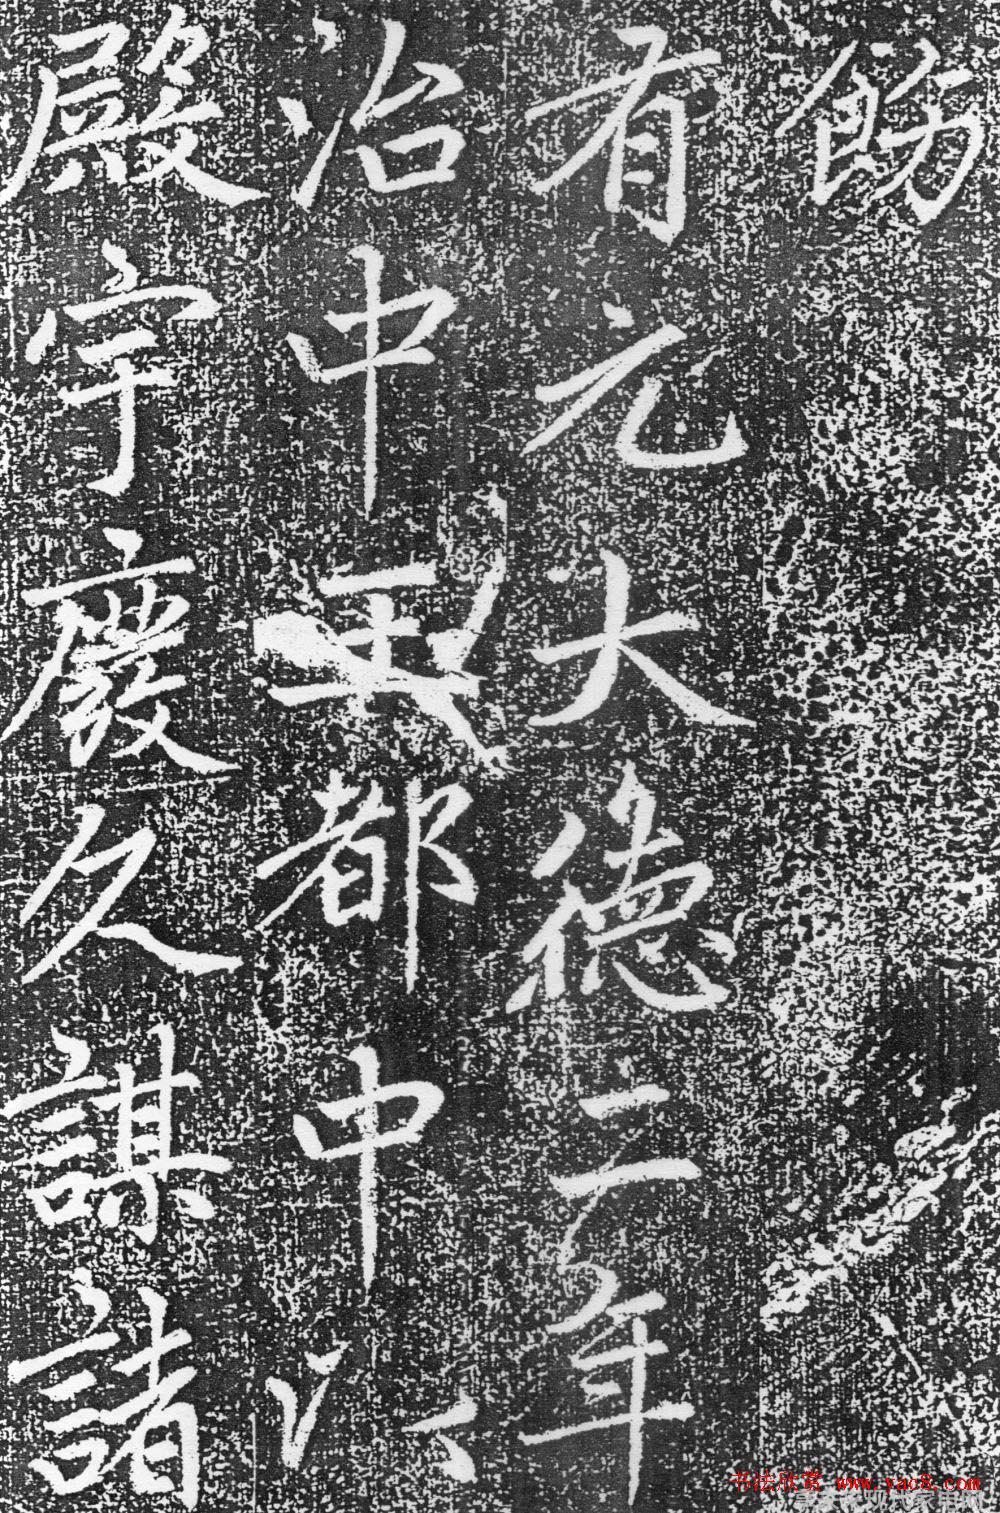 飭
有元大德二年
治中王都中以
殿宇廢久謀諸
书法欣赏 www.yac8.com